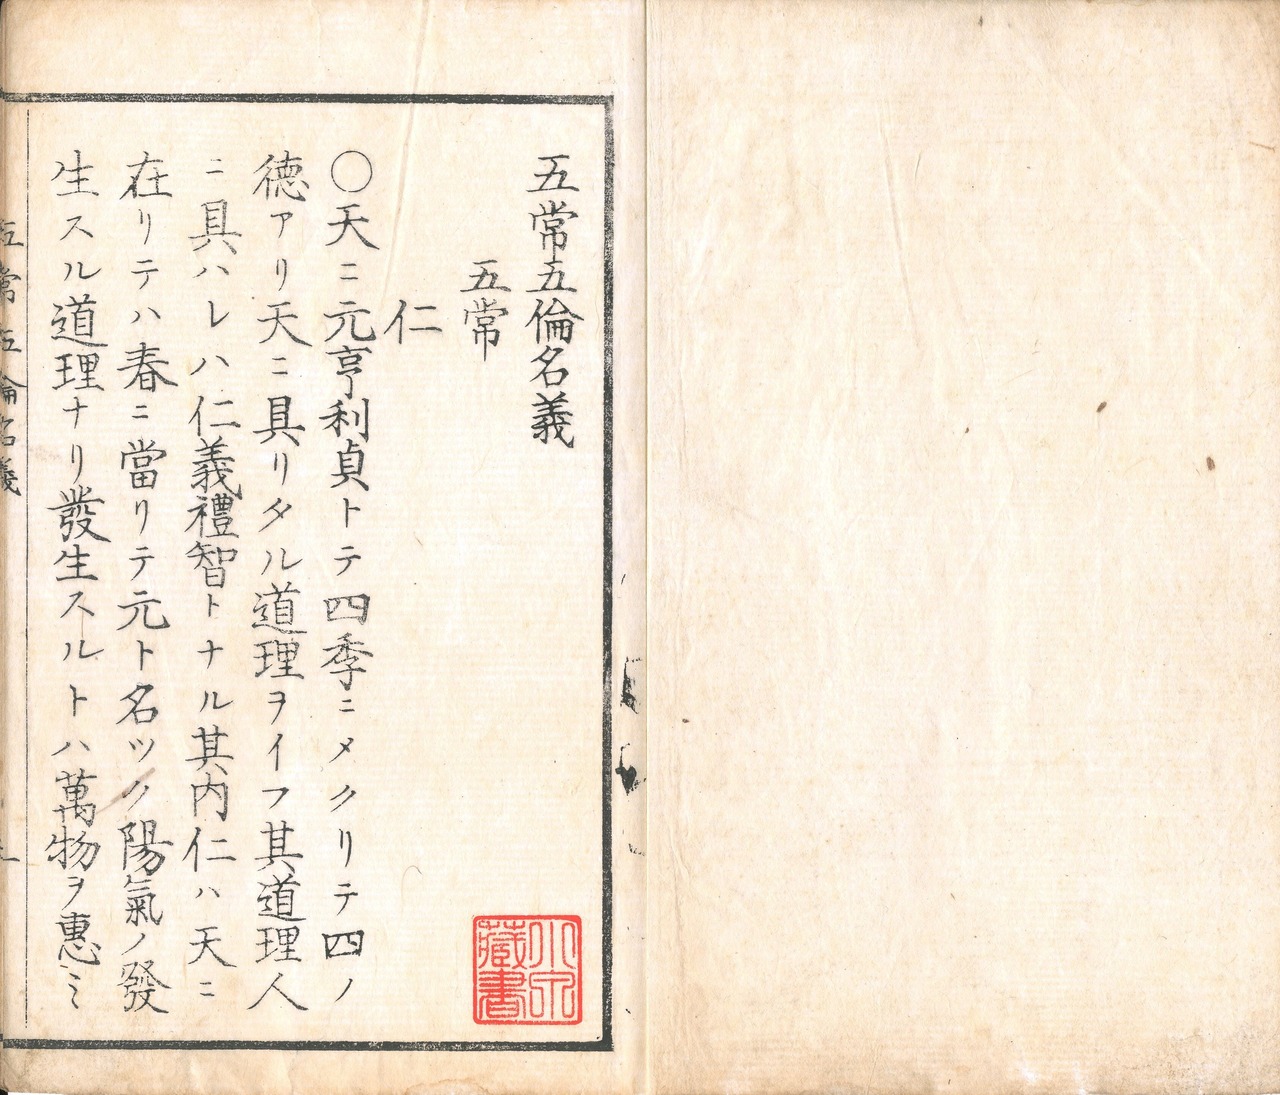 五常五倫名義
五常
仁
○天ニ元亨利貞トテ四季ニメクリテ四ノ
徳アリ天ニ具リタル道理ヲイフ其道理人
ニ具ハレハ仁義禮智トナル其内仁ハ天ニ
在リテハ春ニ當リテ元ト名ツク陽氣ノ發
生スル道理ナリ發生スルトハ萬物ヲ惠ミ
五常五倫名義
小泉
藏書